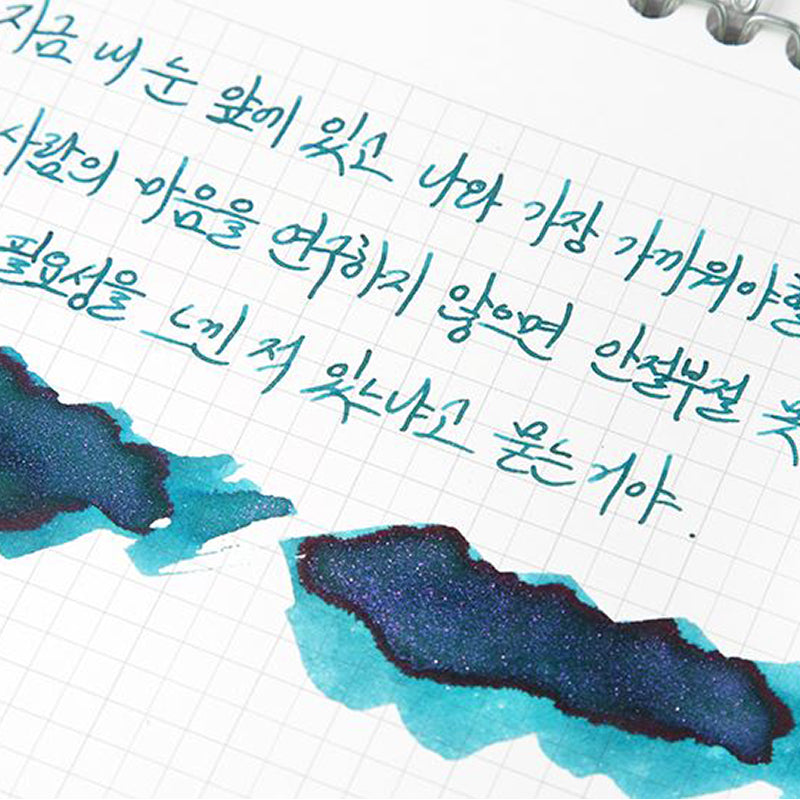 지금 내 눈 앞에 있고 나와 가장 가까워야할
사람의 마음을 연구하지 않으면 안절부절 못
필요성을 느낀 적 있느냐고 묻는거야.